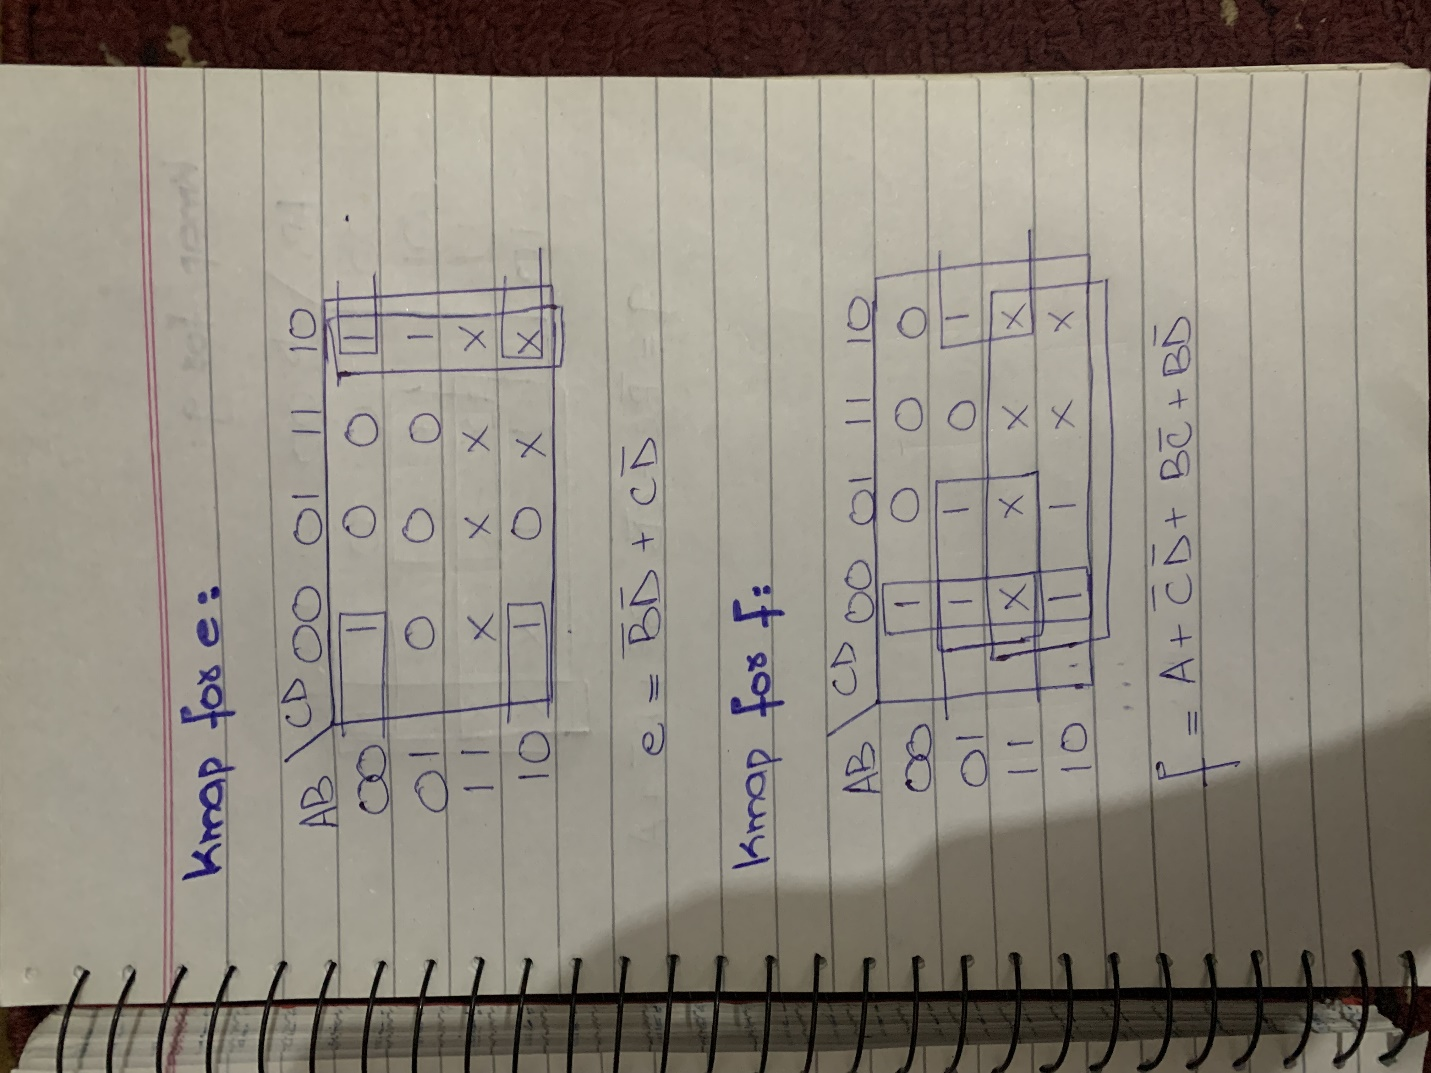 Kmap for e:
AB \ CD 00 01 11 10
00 1 0 0 1
01 0 0 0 1
11 X X X X
10 1 0 X X
e = B̅D̅ + CD̅
Kmap for f:
AB \ CD 00 01 11 10
00 1 0 0 0
01 1 1 0 1
11 X X X X
10 1 1 X X
f = A + C̅D̅ + BC̅ + BD̅